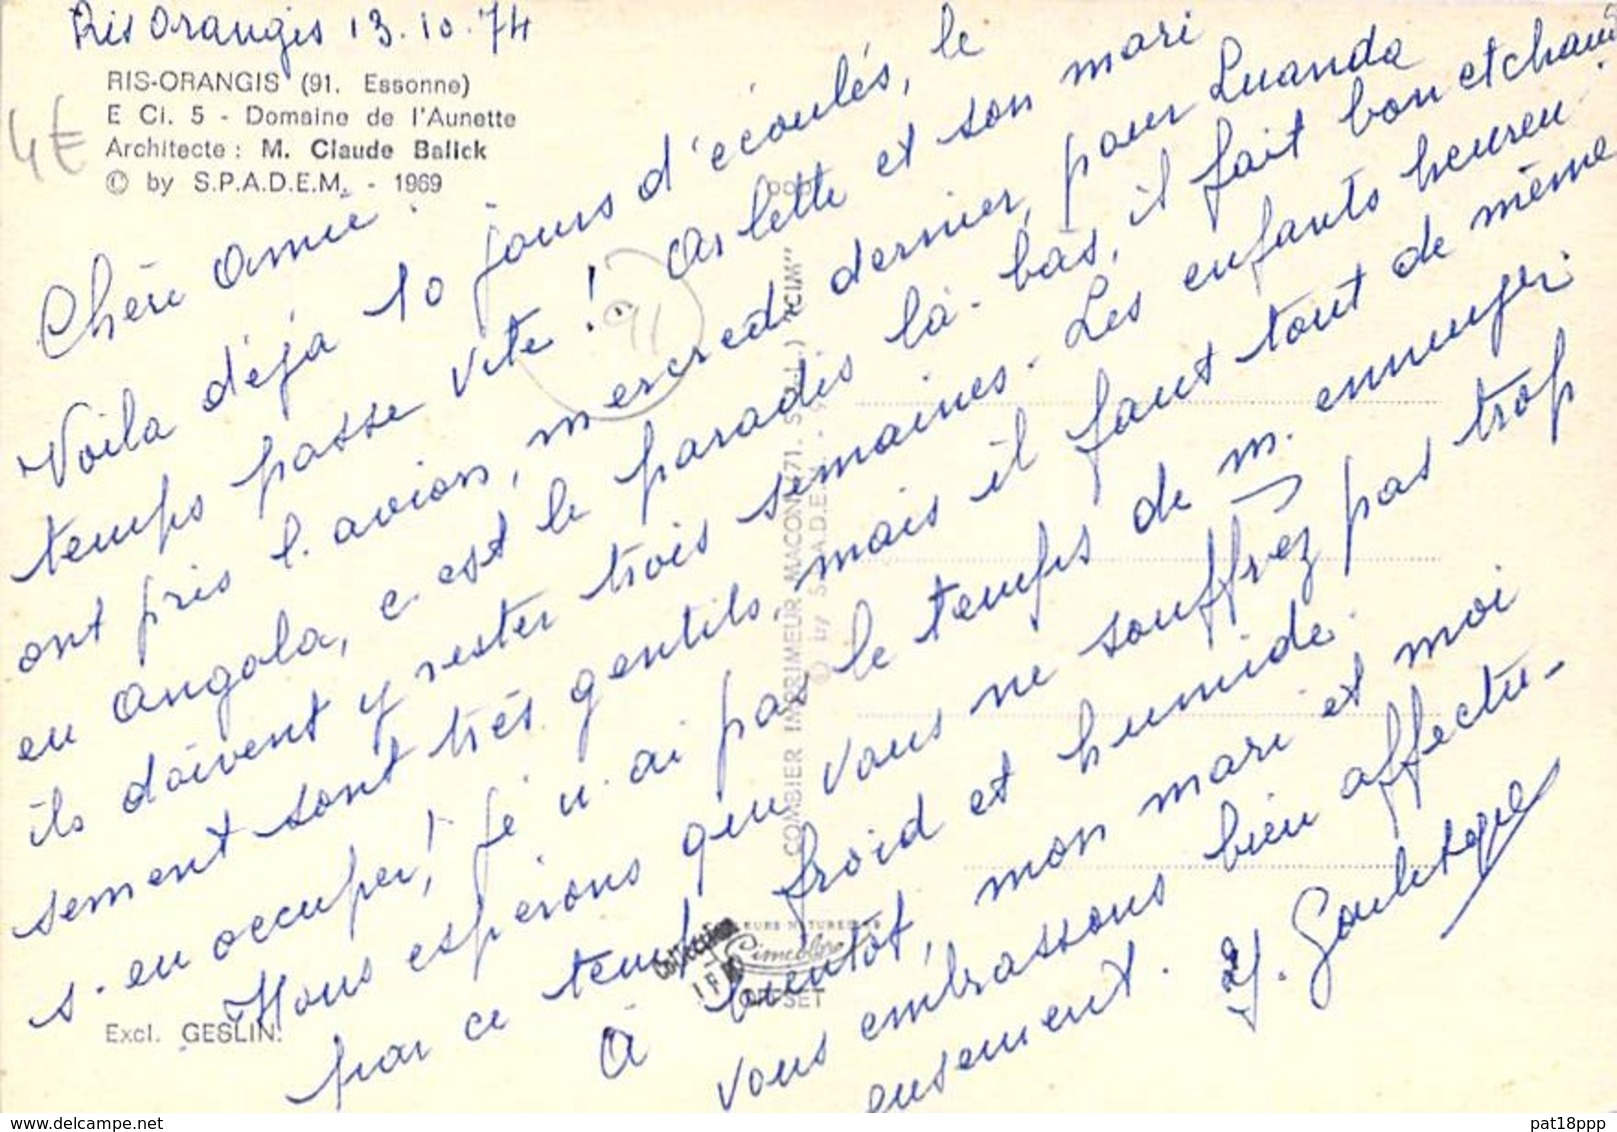 Ris Orangis 13.10.74
RIS-ORANGIS (91. Essonne)
E Ci. 5 - Domaine de l'Aunette
Architecte : M. Claude Balick
© by S.P.A.D.E.M. - 1969
4E
91
Chère Amie :
Voila déjà 10 jours d'écoulés, le
temps passe vite ! Arlette et son mari
ont pris l'avion, mercredi dernier, pour Luanda
en Angola, c'est le paradis là-bas, il fait bon et chaud
ils doivent y rester trois semaines. Les enfants heureu
sement sont très gentils mais il faut tout de même
s'en occuper ! je n'ai pas le temps de m'ennuyer
Nous espérons que vous ne souffrez pas trop
par ce temps froid et humide.
À bientôt, mon mari et moi
vous embrassons bien affectu-
eusement. Y.
COMBIER IMPRIMEUR MACON (71. S.-&-L.) "CIM"
© by S.P.A.D.E.M.
COULEURS NATURELLES
Cimcolor
OFFSET
Collection
Excl. GESLIN.
delcampe.net
pat18ppp